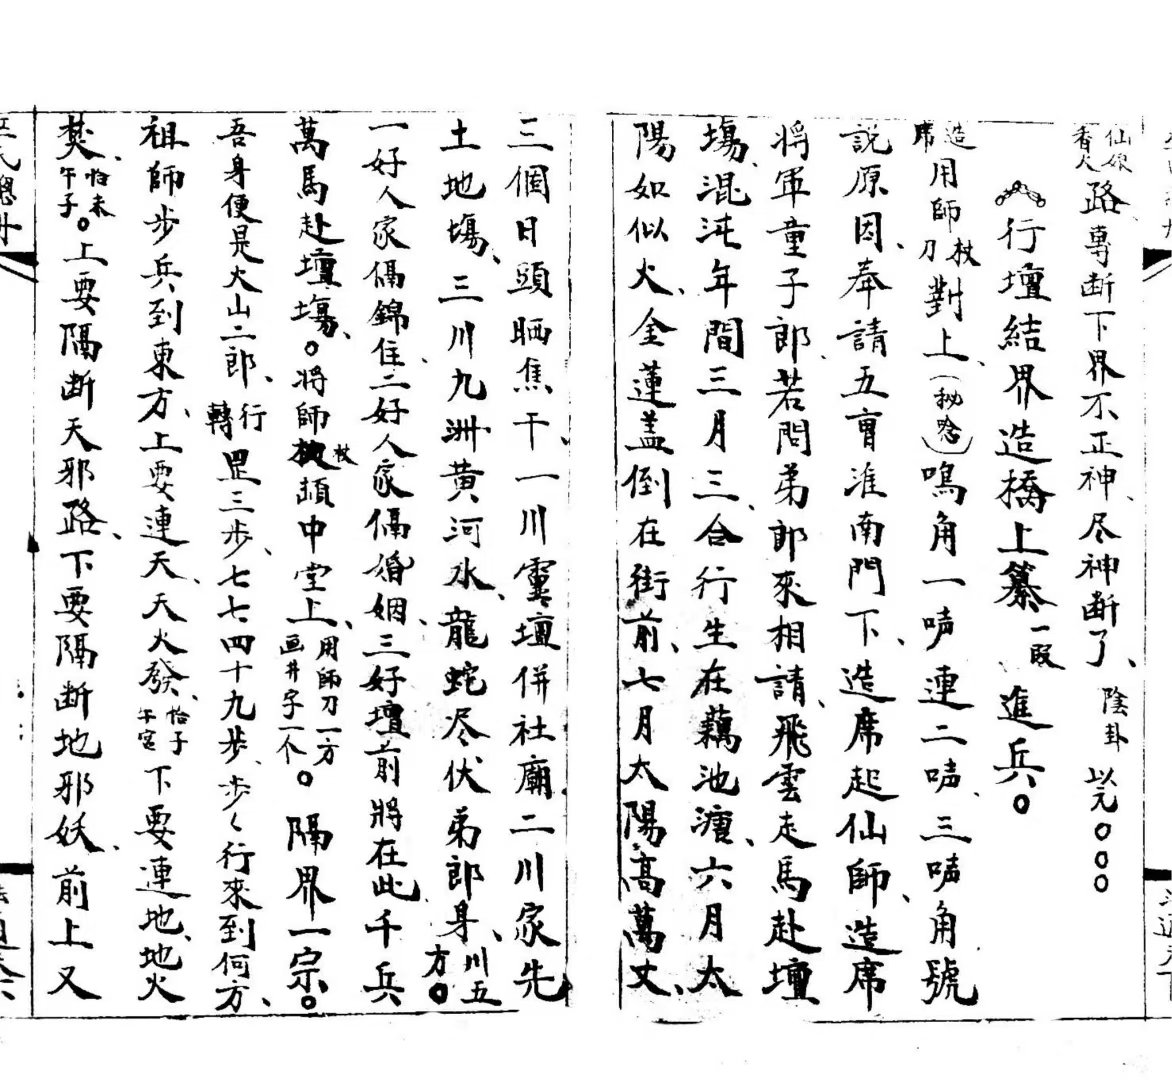 仙娘香火路、專断下界不正神、尽神断了、陰卦 以完○○○
行壇結界造橋上纂、一段 進兵○
造席用師杖刀對上、（秘念）鳴角一唪連二唪、三唪角號
説原因、奉請五曹淮南門下、造席起仙師、造席
將軍童子郎、若問弟郎來相請、飛雲走馬赴壇
塲、混沌年間三月三、合行生在藕池瀍、六月太
陽如似火、金蓮盖倒在街前、七月太陽高萬丈、
三個日頭晒焦干、一川靈壇併社廟、二川家先
土地塲、三川九洲黄河水、龍蛇尽伏弟郎身、川五方○
一好人家偏錦住、二好人家偏婚姻、三好壇前將在此、千兵
萬馬赴壇塲、○將師杖頓中堂上、用師刀一方画井字一个○ 隔界一宗○
吾身便是火山二郎、行轉罡三步、七七四十九步、步々行來到何方、
祖師步兵到東方、上要連天、天火發、恰子午宮下要連地、地火
焚、恰未午子○上要隔断天邪路、下要隔断地邪妖、前上又